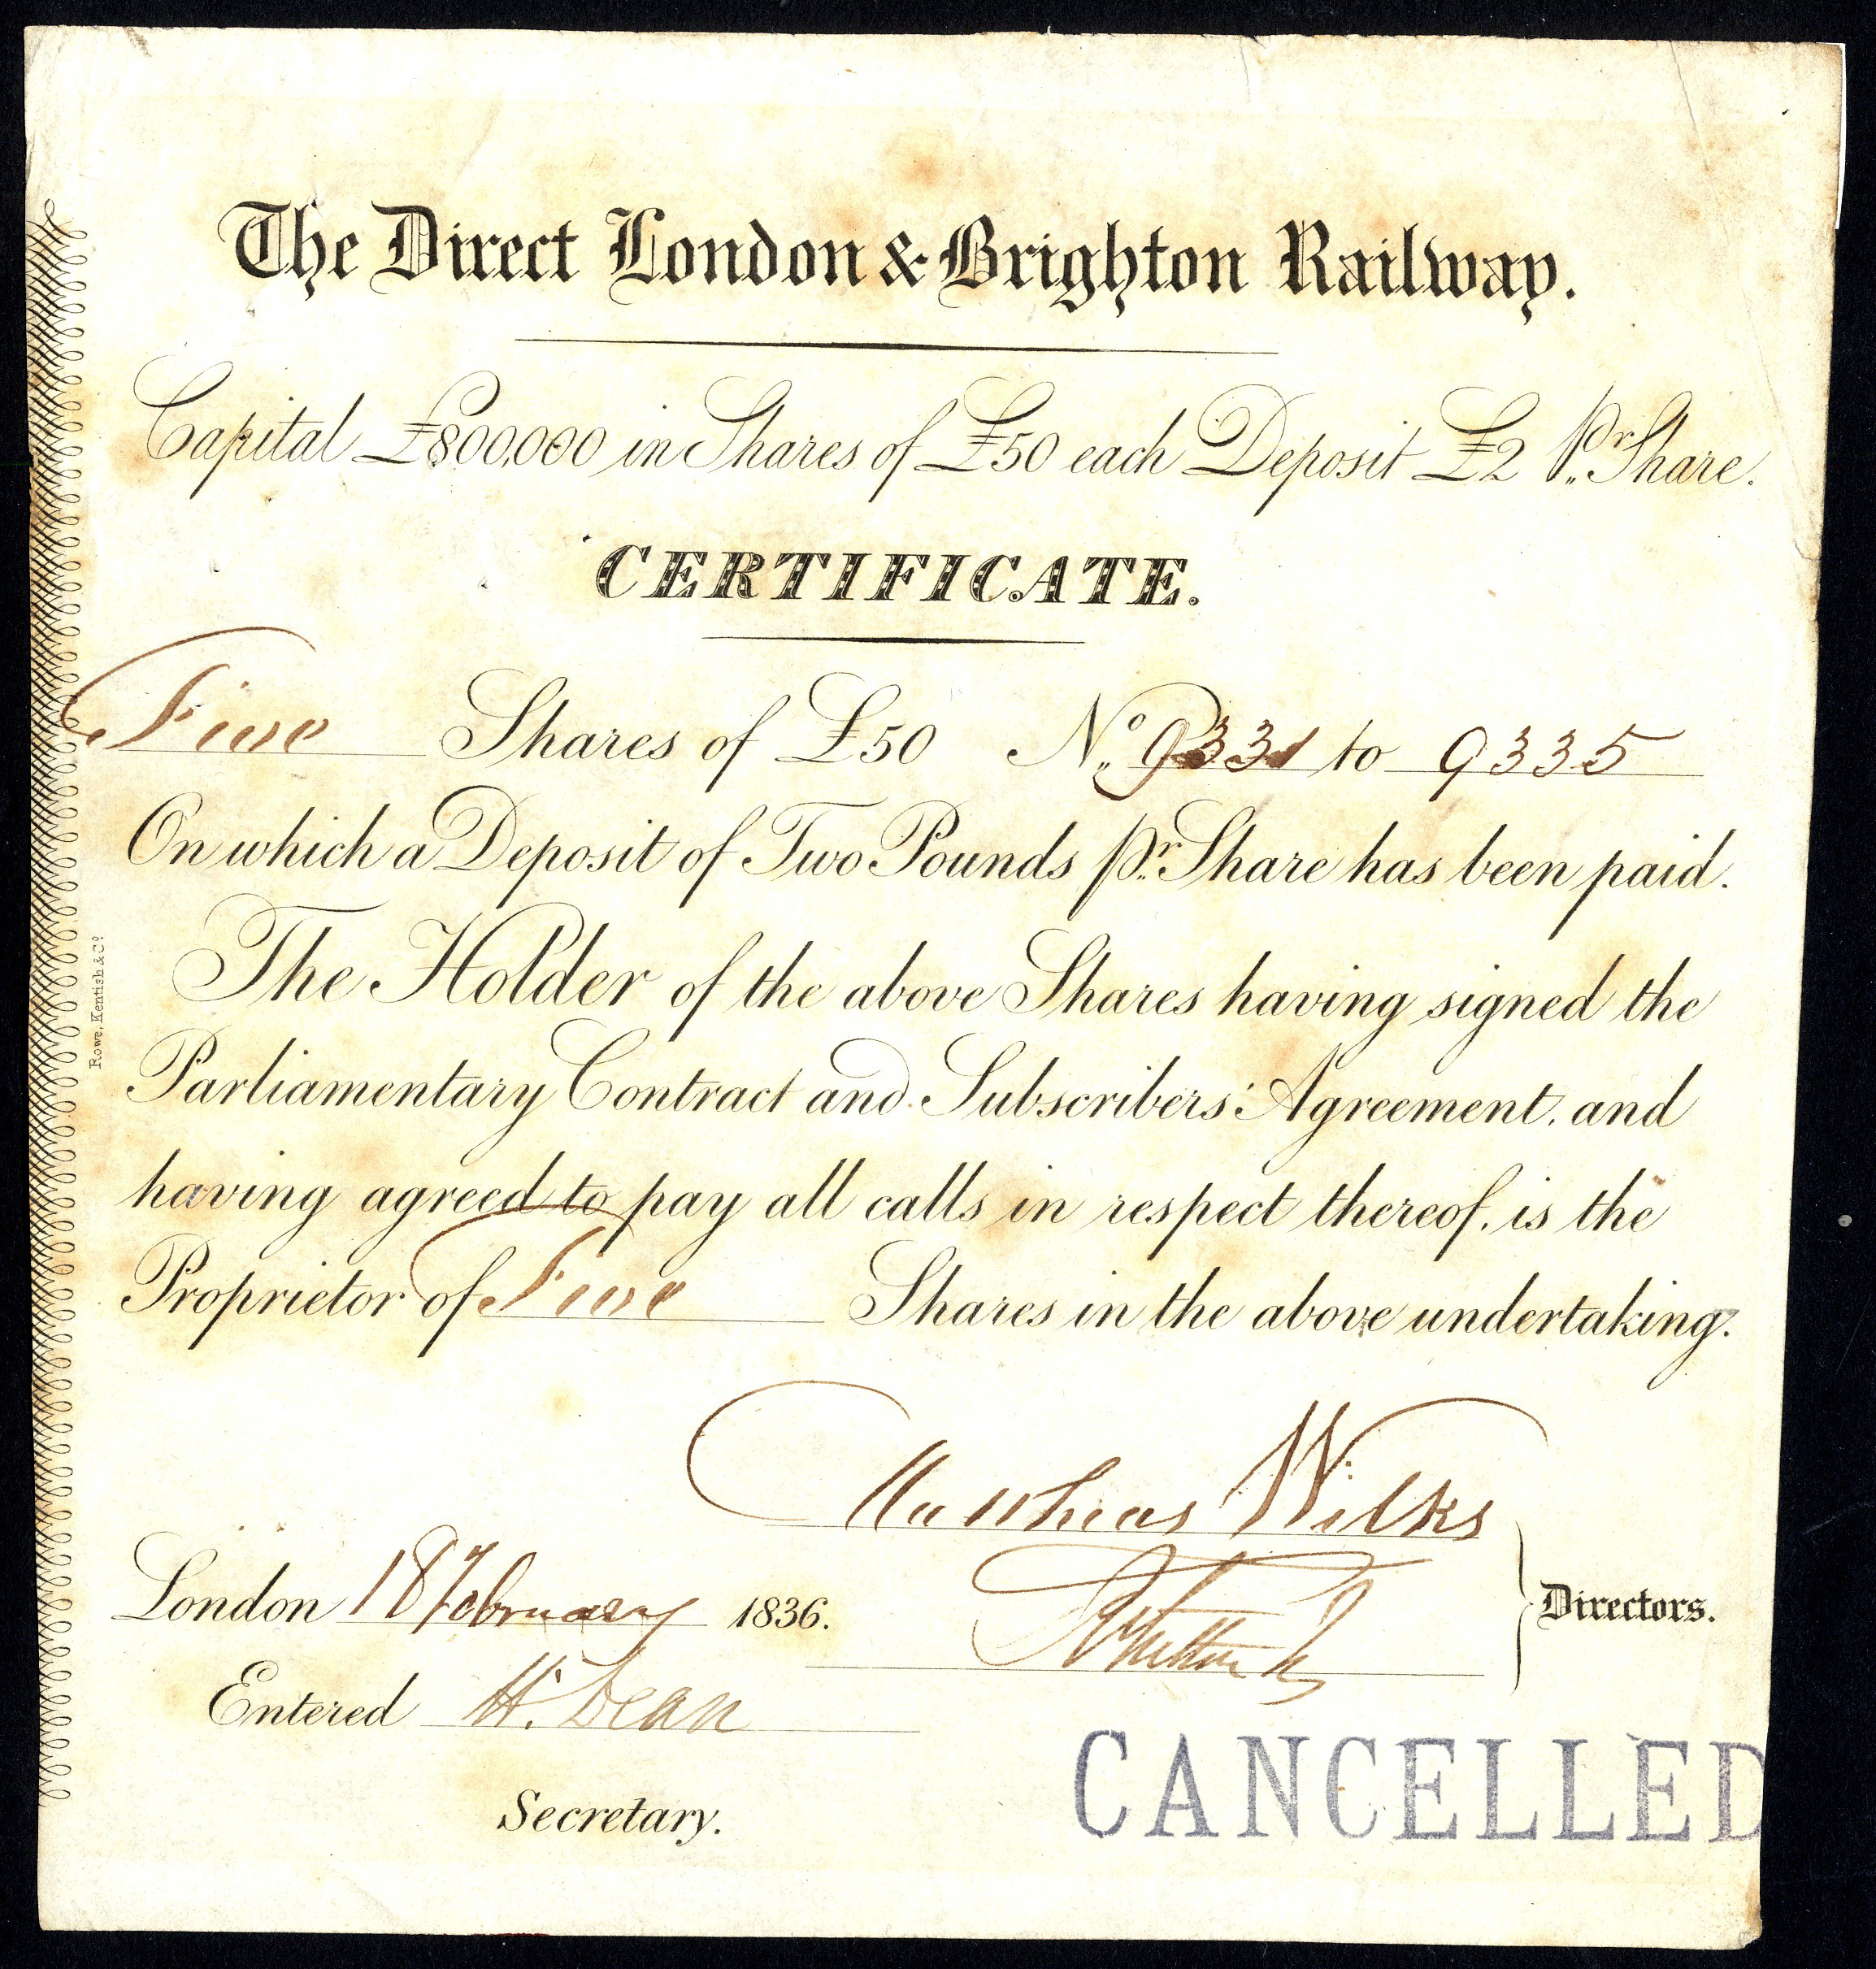 The Direct London & Brighton Railway.
Capital £800,000 in Shares of £50 each Deposit £2 Pr. Share.
CERTIFICATE.
Five Shares of £50 No. 9331 to 9335
On which a Deposit of Two Pounds pr. Share has been paid.
The Holder of the above Shares having signed the
Parliamentary Contract and Subscribers' Agreement, and
having agreed to pay all calls in respect thereof, is the
Proprietor of Five Shares in the above undertaking.
Rowe, Kentish & Co.
Matthias Wilks
London 18 February 1836.
Directors.
Entered H. Dean
Secretary.
CANCELLED